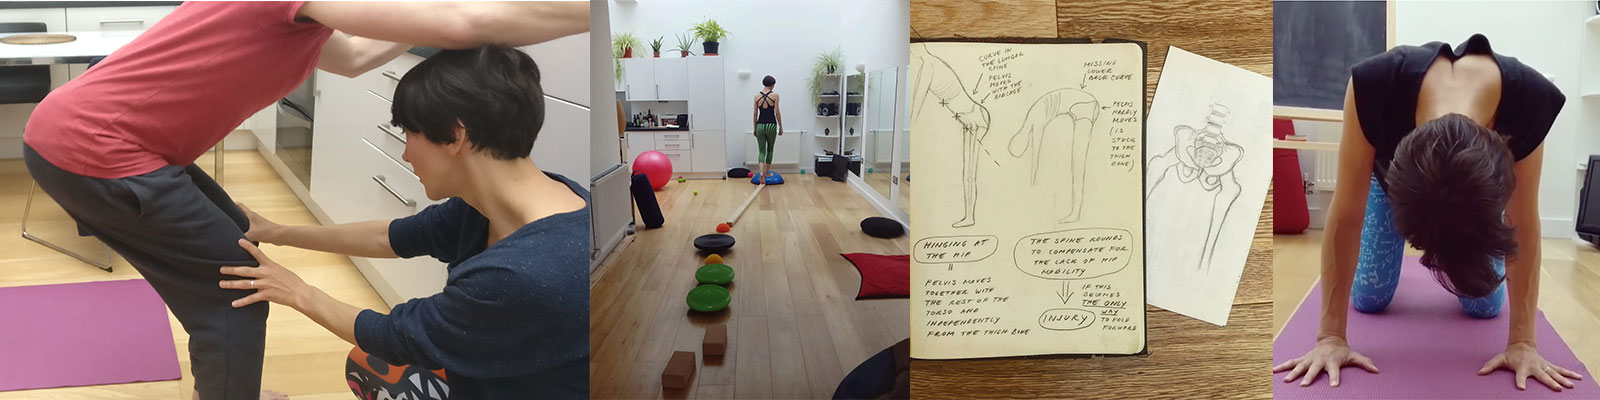 CURVE IN
THE LUMBAR
SPINE
PELVIS
MOVES
WITH THE
RIBCAGE
MISSING
LOWER
BACK CURVE
PELVIS
HARDLY
MOVES
(IS
STUCK
TO THE
THIGH
BONE)
HINGING AT
THE HIP
PELVIS MOVES
TOGETHER WITH
THE REST OF THE
TORSO AND
INDEPENDENTLY
FROM THE THIGH BONE
THE SPINE ROUNDS
TO COMPENSATE FOR
THE LACK OF HIP
MOBILITY
INJURY
IF THIS
BECOMES
THE ONLY
WAY
TO FOLD
FORWARD